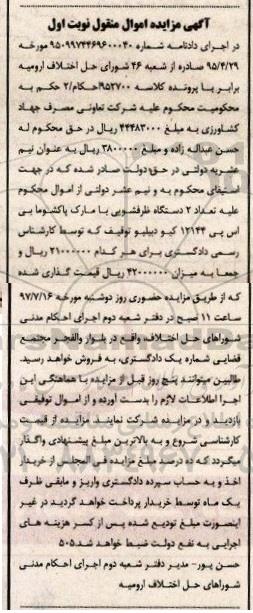 آگهی مزایده اموال منقول نوبت اول
در اجرای دادنامه شماره ۹۵۰۹۹۷۴۴۶۹۶۰۰۰۴۰ مورخه
۹۵/۴/۲۹ صادره از شعبه ۴۶ شورای حل اختلاف ارومیه
برابر با پرونده کلاسه ۹۵۲۷۰۰احکام/۲ حکم به
محکومیت محکوم علیه شرکت تعاونی مصرف جهاد
کشاورزی به مبلغ ۴۴۴۸۳۰۰۰ ریال در حق محکوم له
حسن عبداله زاده و مبلغ ۳۸۰۰۰۰۰ ریال به عنوان نیم
عشریه دولتی در حق دولت صادر شده که در جهت
استیفای محکوم به و نیم عشر دولتی از اموال محکوم
علیه تعداد ۲ دستگاه ظرفشویی با مارک پاکشوما بی
اس پی ۱۲۱۴۴ کیو دبیلیو توقیف که توسط کارشناس
رسمی دادگستری برای هر کدام ۲۱۰۰۰۰۰۰ ریال و
جمعا به میزان ۴۲۰۰۰۰۰۰ ریال قیمت گذاری شده
که از طریق مزایده حضوری روز دوشنبه مورخه ۹۷/۷/۱۶
ساعت ۱۱ صبح در دفتر شعبه دوم اجرای احکام مدنی
شوراهای حل اختلاف، واقع در بلوار والفجر مجتمع
قضایی شماره یک دادگستری، به فروش خواهد رسید.
طالبین میتوانند پنج روز قبل از مزایده با هماهنگی این
اجرا اطلاعات لازم را بدست آورده و از اموال توقیفی
بازدید و در مزایده شرکت نمایند. مزایده از قیمت
کارشناسی شروع و به بالاترین مبلغ پیشنهادی واگذار
میگردد که ده درصد مبلغ مزایده فی المجلس از خریدار
اخذ و به حساب سپرده دادگستری واریز و مابقی ظرف
یک ماه توسط خریدار پرداخت خواهد گردید در غیر
اینصورت مبلغ تودیع شده پس از کسر هزینه های
اجرایی به نفع دولت ضبط خواهد شد.۵۰۵
حسن پور- مدیر دفتر شعبه دوم اجرای احکام مدنی
شوراهای حل اختلاف ارومیه